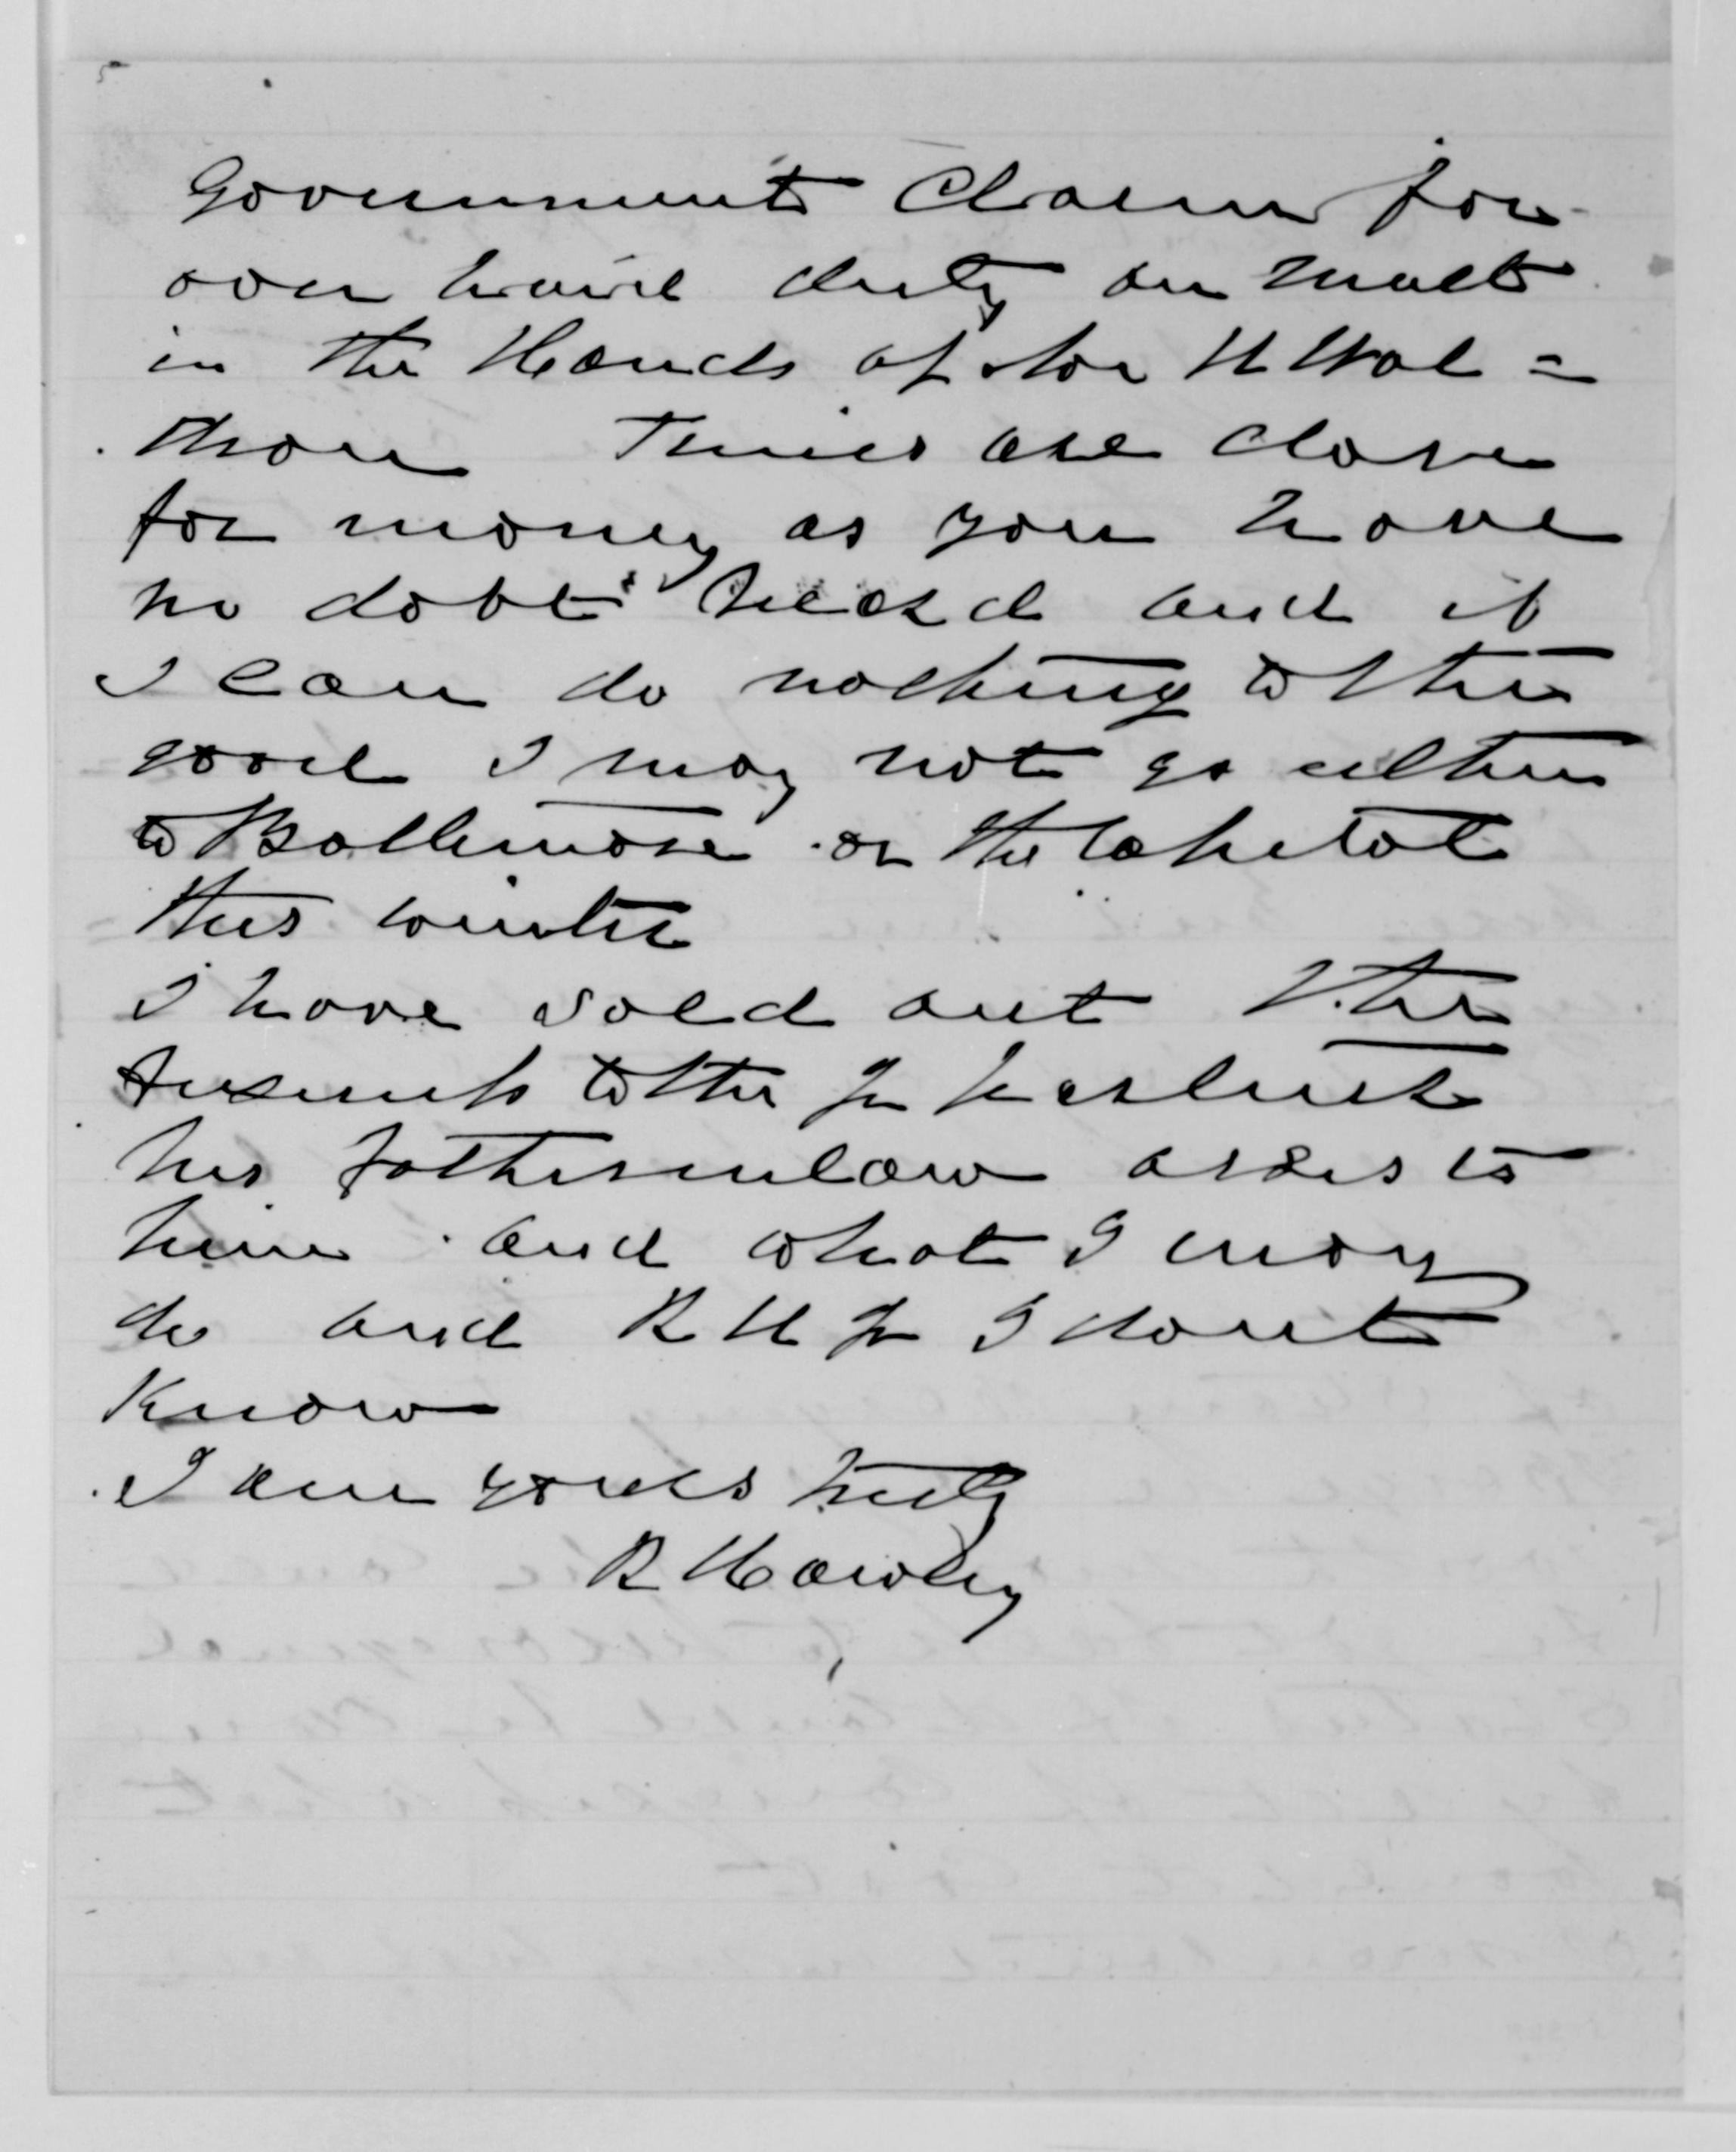 Government Claim for
over paid duty on malt
in the Hands of Jos H Wal=
thon Times are close
for money as you have
no dobt heard and if
I can do nothing to their
good I may not go either
to Baltimore or the Capitol
this winter
I have sold out
to the Jr
his fatherinlaw assists
him and what I may
do and R H Jr I dont
Know
I am yours truly
R Hawley